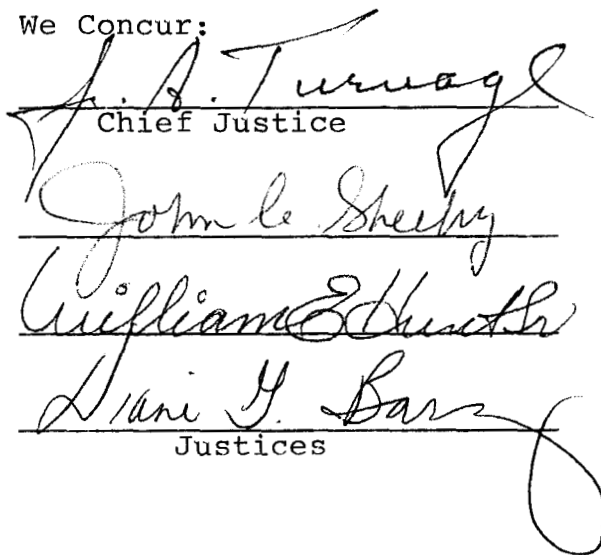 We Concur:
J. A. Turnage
Chief Justice
John C. Sheehy
William E Hunt Sr
Diane G. Barz
Justices